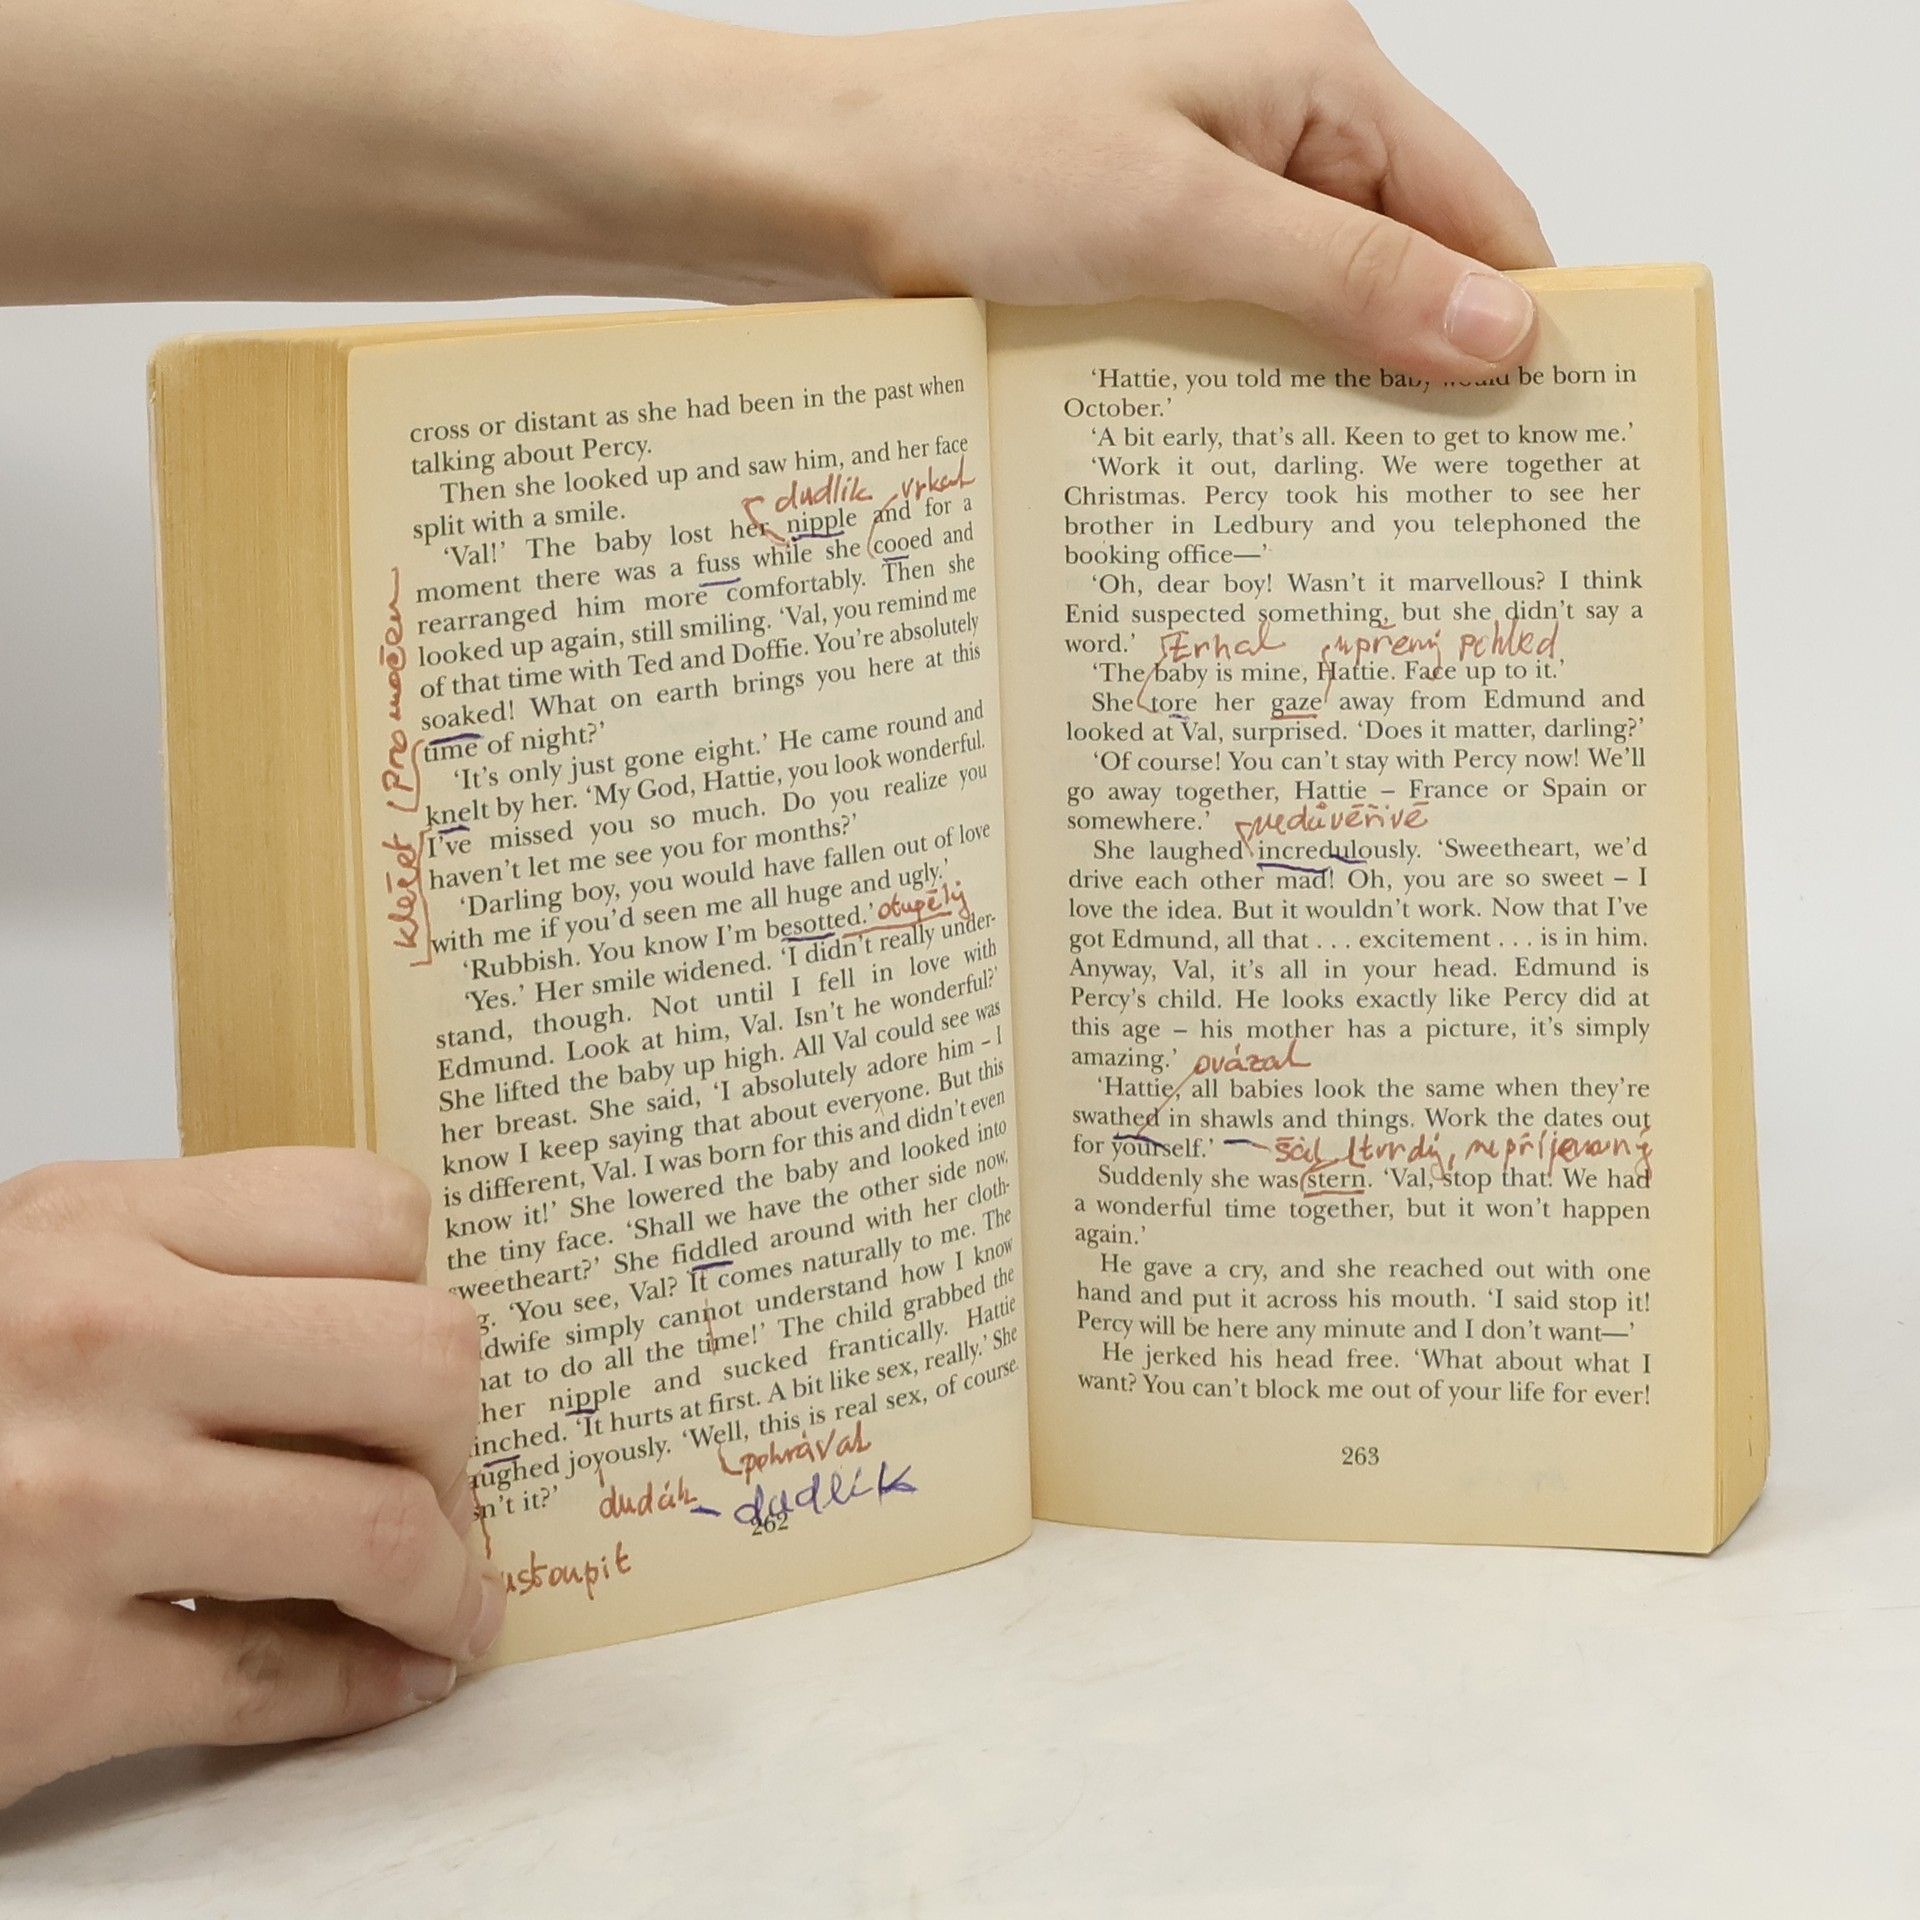 cross or distant as she had been in the past when
talking about Percy.
Then she looked up and saw him, and her face
split with a smile.
dudlík vrkat
‘Val!’ The baby lost her nipple and for a
moment there was a fuss while she cooed and
rearranged him more comfortably. Then she
looked up again, still smiling. ‘Val, you remind me
of that time with Ted and Doffie. You’re absolutely
soaked! What on earth brings you here at this
time of night?’
promáčen
‘It’s only just gone eight.’ He came round and
knelt by her. ‘My God, Hattie, you look wonderful.
I’ve missed you so much. Do you realize you
haven’t let me see you for months?’
klečet
‘Darling boy, you would have fallen out of love
with me if you’d seen me all huge and ugly.’
‘Rubbish. You know I’m besotted.’ otupělý
‘Yes.’ Her smile widened. ‘I didn’t really under-
stand, though. Not until I fell in love with
Edmund. Look at him, Val. Isn’t he wonderful?’
She lifted the baby up high. All Val could see was
her breast. She said, ‘I absolutely adore him – I
know I keep saying that about everyone. But this
is different, Val. I was born for this and didn’t even
know it!’ She lowered the baby and looked into
the tiny face. ‘Shall we have the other side now,
sweetheart?’ She fiddled around with her cloth-
g. ‘You see, Val? It comes naturally to me. The
dwife simply cannot understand how I know
hat to do all the time!’ The child grabbed the
her nipple and sucked frantically. Hattie
inched. ‘It hurts at first. A bit like sex, really.’ She
aughed joyously. ‘Well, this is real sex, of course.
sn’t it?’
pohrával
dudák – dudlík
262
ustoupit
‘Hattie, you told me the baby would be born in
October.’
‘A bit early, that’s all. Keen to get to know me.’
‘Work it out, darling. We were together at
Christmas. Percy took his mother to see her
brother in Ledbury and you telephoned the
booking office—’
‘Oh, dear boy! Wasn’t it marvellous? I think
Enid suspected something, but she didn’t say a
word.’ trhal upřený pohled
‘The baby is mine, Hattie. Face up to it.’
She tore her gaze away from Edmund and
looked at Val, surprised. ‘Does it matter, darling?’
‘Of course! You can’t stay with Percy now! We’ll
go away together, Hattie – France or Spain or
somewhere.’ nedůvěřivě
She laughed incredulously. ‘Sweetheart, we’d
drive each other mad! Oh, you are so sweet – I
love the idea. But it wouldn’t work. Now that I’ve
got Edmund, all that . . . excitement . . . is in him.
Anyway, Val, it’s all in your head. Edmund is
Percy’s child. He looks exactly like Percy did at
this age – his mother has a picture, it’s simply
amazing.’ ovázal
‘Hattie, all babies look the same when they’re
swathed in shawls and things. Work the dates out
for yourself.’ – šál tvrdý, nepříjemný
Suddenly she was stern. ‘Val, stop that! We had
a wonderful time together, but it won’t happen
again.’
He gave a cry, and she reached out with one
hand and put it across his mouth. ‘I said stop it!
Percy will be here any minute and I don’t want—’
He jerked his head free. ‘What about what I
want? You can’t block me out of your life for ever!
263